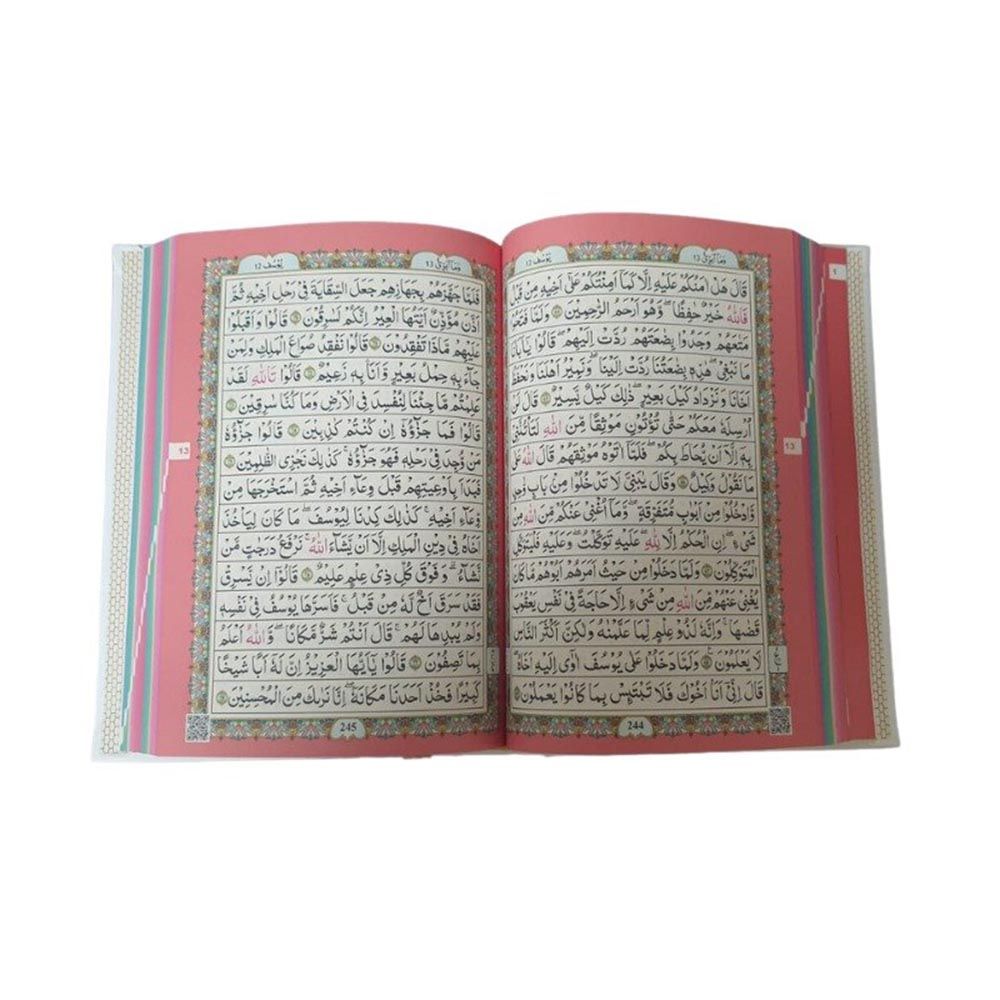 وَمَآ اُبَرِّئُ 13
يُوْسُف 12
قَالَ هَلْ اٰمَنُكُمْ عَلَيْهِ اِلَّا كَمَآ اَمِنْتُكُمْ عَلٰٓى اَخِيْهِ مِنْ قَبْلُ
فَاللّٰهُ خَيْرٌ حٰفِظًا ۖ وَّهُوَ اَرْحَمُ الرّٰحِمِيْنَ ۝٦٤ وَلَمَّا فَتَحُوْا
مَتَاعَهُمْ وَجَدُوْا بِضَاعَتَهُمْ رُدَّتْ اِلَيْهِمْ ۗ قَالُوْا يٰٓاَبَانَا
مَا نَبْغِيْ ۗ هٰذِهٖ بِضَاعَتُنَا رُدَّتْ اِلَيْنَا ۚ وَنَمِيْرُ اَهْلَنَا وَنَحْفَظُ
اَخَانَا وَنَزْدَادُ كَيْلَ بَعِيْرٍ ۗ ذٰلِكَ كَيْلٌ يَّسِيْرٌ ۝٦٥ قَالَ لَنْ
اُرْسِلَهٗ مَعَكُمْ حَتّٰى تُؤْتُوْنِ مَوْثِقًا مِّنَ اللّٰهِ لَتَأْتُنَّنِيْ
بِهٖٓ اِلَّآ اَنْ يُّحَاطَ بِكُمْ ۚ فَلَمَّآ اٰتَوْهُ مَوْثِقَهُمْ قَالَ اللّٰهُ عَلٰى
مَا نَقُوْلُ وَكِيْلٌ ۝٦٦ وَقَالَ يٰبَنِيَّ لَا تَدْخُلُوْا مِنْ بَابٍ وَّاحِدٍ
وَّادْخُلُوْا مِنْ اَبْوَابٍ مُّتَفَرِّقَةٍ ۗ وَمَآ اُغْنِيْ عَنْكُمْ مِّنَ اللّٰهِ مِنْ
شَيْءٍ ۗ اِنِ الْحُكْمُ اِلَّا لِلّٰهِ ۗ عَلَيْهِ تَوَكَّلْتُ ۚ وَعَلَيْهِ فَلْيَتَوَكَّلِ
الْمُتَوَكِّلُوْنَ ۝٦٧ وَلَمَّا دَخَلُوْا مِنْ حَيْثُ اَمَرَهُمْ اَبُوْهُمْ ۗ مَا كَانَ
يُغْنِيْ عَنْهُمْ مِّنَ اللّٰهِ مِنْ شَيْءٍ اِلَّا حَاجَةً فِيْ نَفْسِ يَعْقُوْبَ
قَضٰىهَا ۗ وَاِنَّهٗ لَذُوْ عِلْمٍ لِّمَا عَلَّمْنٰهُ وَلٰكِنَّ اَكْثَرَ النَّاسِ
لَا يَعْلَمُوْنَ ۝٦٨ وَلَمَّا دَخَلُوْا عَلٰى يُوْسُفَ اٰوٰٓى اِلَيْهِ اَخَاهُ
قَالَ اِنِّيْٓ اَنَا اَخُوْكَ فَلَا تَبْتَىِٕسْ بِمَا كَانُوْا يَعْمَلُوْنَ ۝٦٩
244
13
1
وَمَآ اُبَرِّئُ 13
يُوْسُف 12
فَلَمَّا جَهَّزَهُمْ بِجَهَازِهِمْ جَعَلَ السِّقَايَةَ فِيْ رَحْلِ اَخِيْهِ ثُمَّ
اَذَّنَ مُؤَذِّنٌ اَيَّتُهَا الْعِيْرُ اِنَّكُمْ لَسٰرِقُوْنَ ۝٧٠ قَالُوْا وَاَقْبَلُوْا
عَلَيْهِمْ مَّاذَا تَفْقِدُوْنَ ۝٧١ قَالُوْا نَفْقِدُ صُوَاعَ الْمَلِكِ وَلِمَنْ
جَآءَ بِهٖ حِمْلُ بَعِيْرٍ وَّاَنَا۠ بِهٖ زَعِيْمٌ ۝٧٢ قَالُوْا تَاللّٰهِ لَقَدْ
عَلِمْتُمْ مَّا جِئْنَا لِنُفْسِدَ فِى الْاَرْضِ وَمَا كُنَّا سٰرِقِيْنَ ۝٧٣
قَالُوْا فَمَا جَزَآؤُهٗٓ اِنْ كُنْتُمْ كٰذِبِيْنَ ۝٧٤ قَالُوْا جَزَآؤُهٗ
مَنْ وُّجِدَ فِيْ رَحْلِهٖ فَهُوَ جَزَآؤُهٗ ۗ كَذٰلِكَ نَجْزِى الظّٰلِمِيْنَ ۝٧٥
فَبَدَاَ بِاَوْعِيَتِهِمْ قَبْلَ وِعَآءِ اَخِيْهِ ثُمَّ اسْتَخْرَجَهَا مِنْ
وِّعَآءِ اَخِيْهِ ۗ كَذٰلِكَ كِدْنَا لِيُوْسُفَ ۗ مَا كَانَ لِيَأْخُذَ
اَخَاهُ فِيْ دِيْنِ الْمَلِكِ اِلَّآ اَنْ يَّشَآءَ اللّٰهُ ۗ نَرْفَعُ دَرَجٰتٍ مَّنْ
نَّشَآءُ ۗ وَفَوْقَ كُلِّ ذِيْ عِلْمٍ عَلِيْمٌ ۝٧٦ قَالُوْٓا اِنْ يَّسْرِقْ
فَقَدْ سَرَقَ اَخٌ لَّهٗ مِنْ قَبْلُ ۚ فَاَسَرَّهَا يُوْسُفُ فِيْ نَفْسِهٖ
وَلَمْ يُبْدِهَا لَهُمْ ۚ قَالَ اَنْتُمْ شَرٌّ مَّكَانًا ۚ وَاللّٰهُ اَعْلَمُ
بِمَا تَصِفُوْنَ ۝٧٧ قَالُوْا يٰٓاَيُّهَا الْعَزِيْزُ اِنَّ لَهٗٓ اَبًا شَيْخًا
كَبِيْرًا فَخُذْ اَحَدَنَا مَكَانَهٗ ۚ اِنَّا نَرٰىكَ مِنَ الْمُحْسِنِيْنَ ۝٧٨
245
13